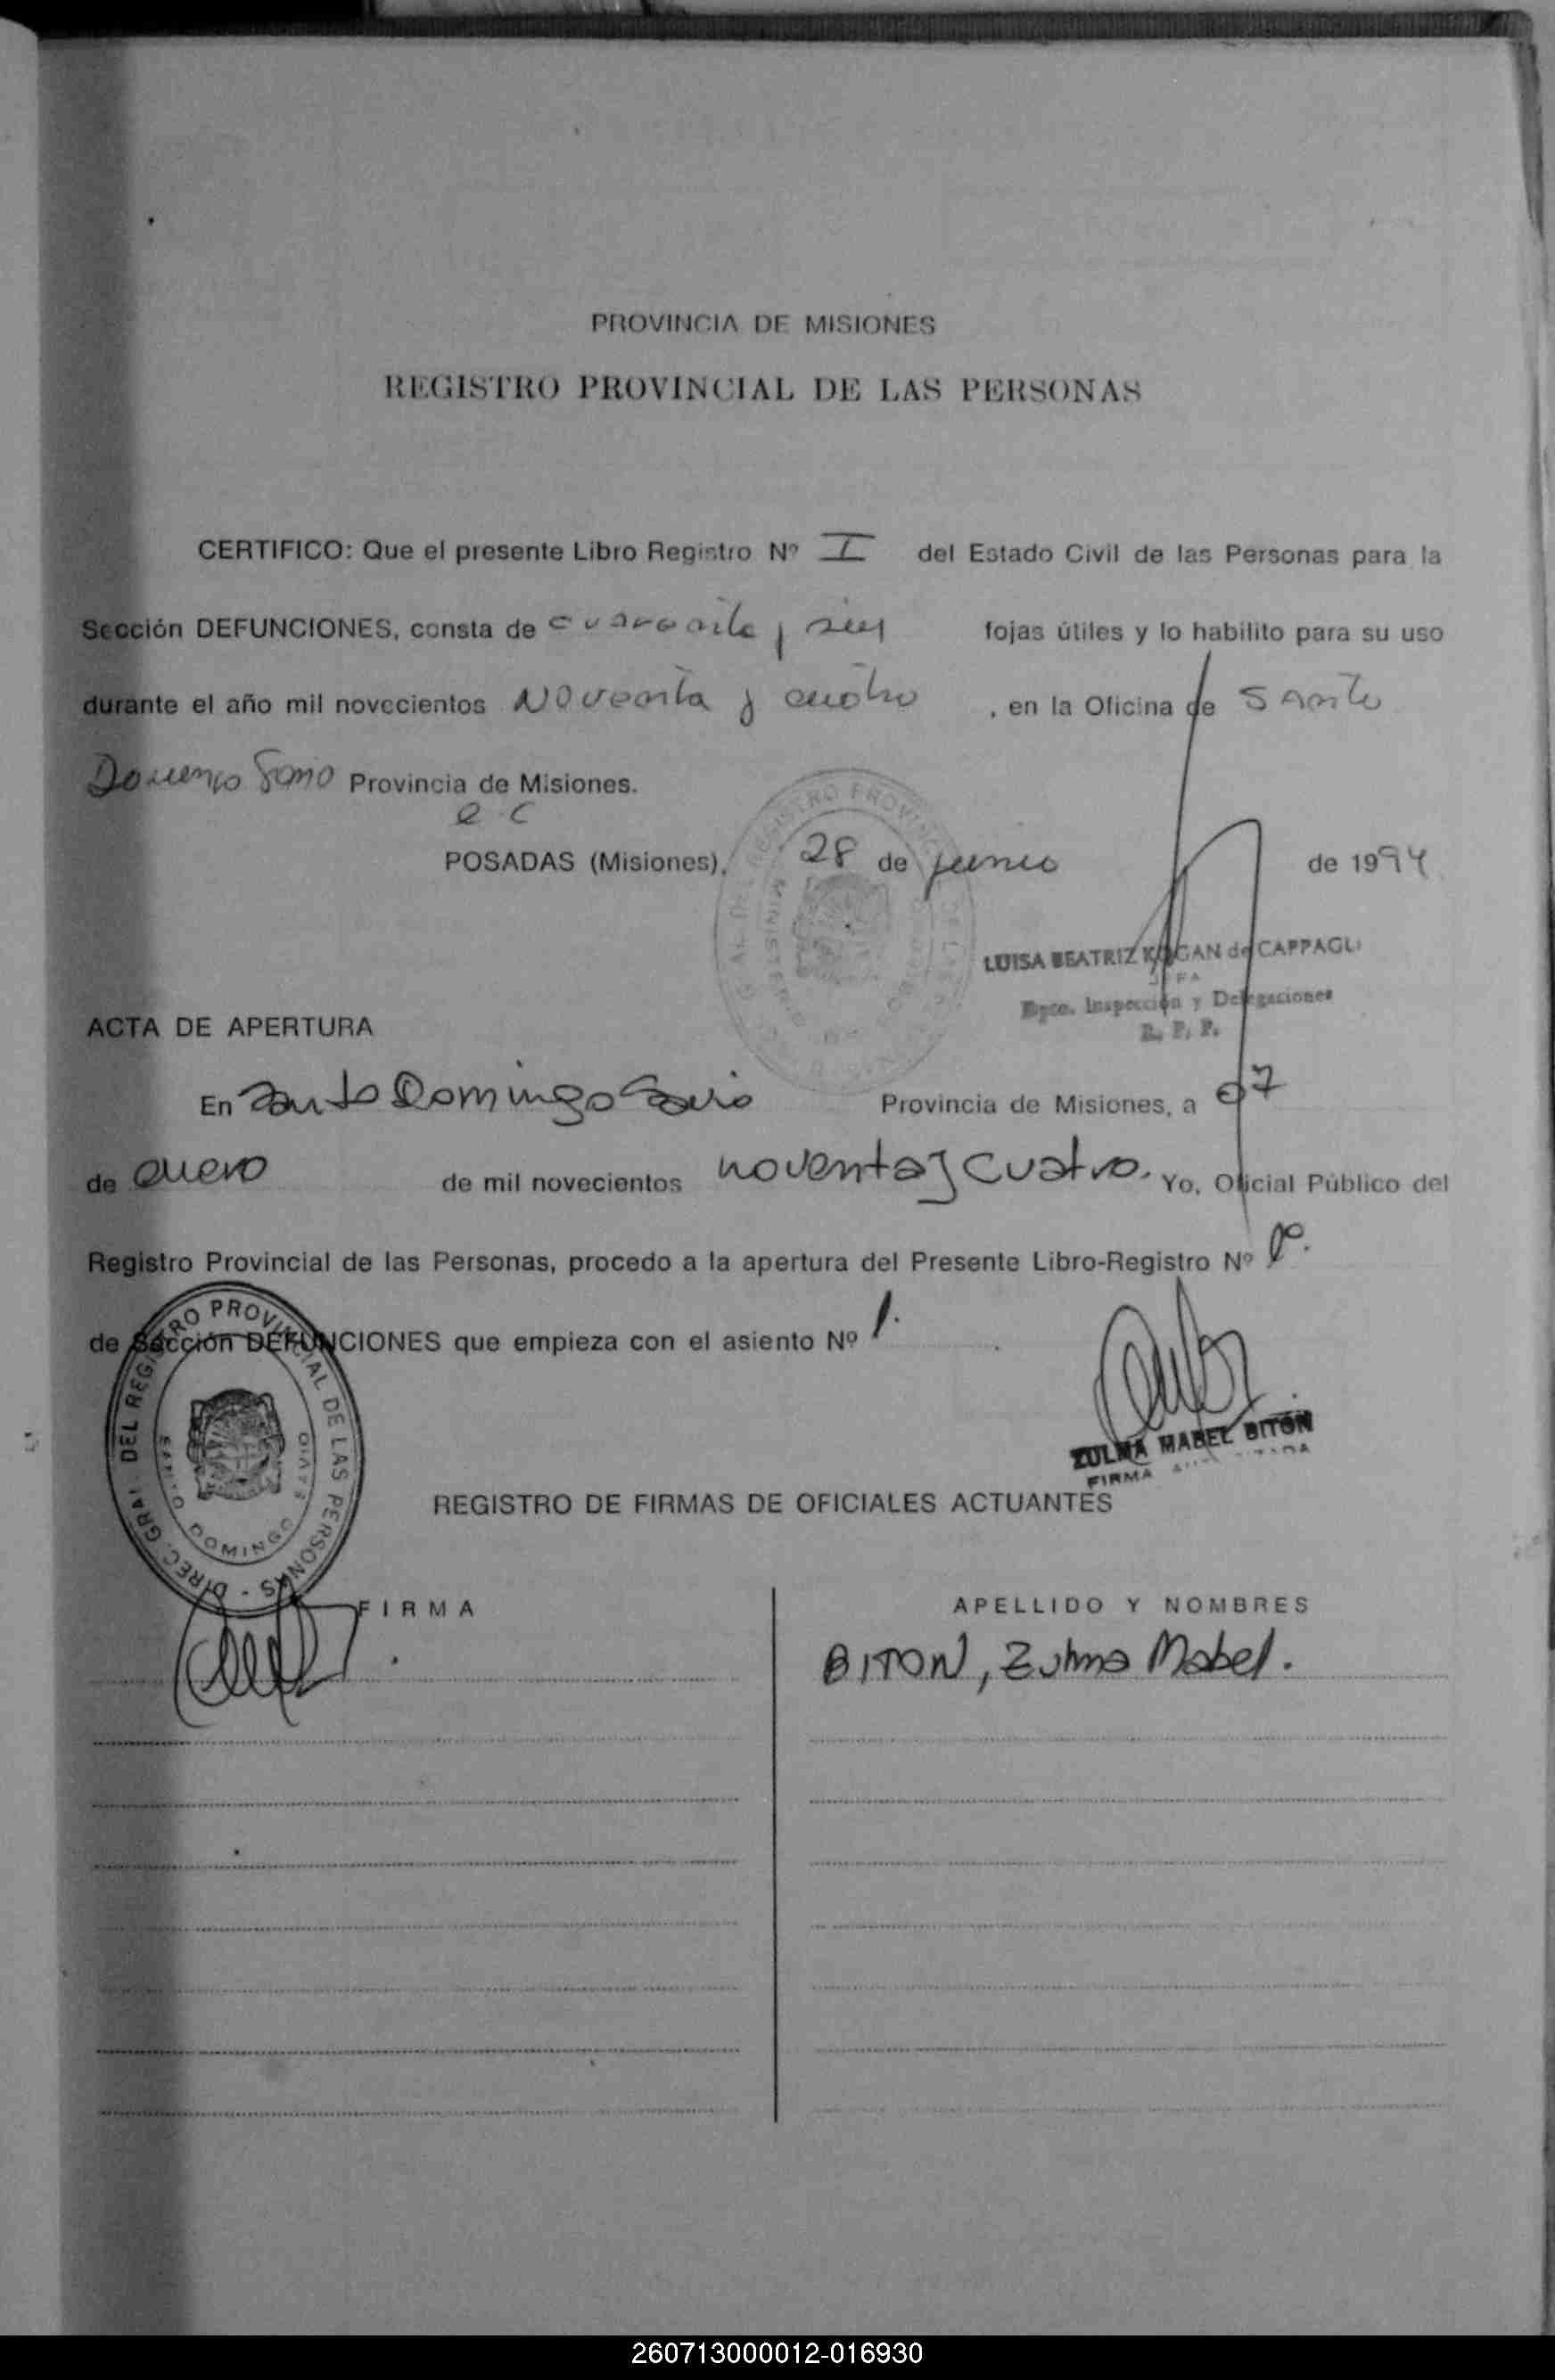 PROVINCIA DE MISIONES
REGISTRO PROVINCIAL DE LAS PERSONAS
CERTIFICO: Que el presente Libro Registro Nº I del Estado Civil de las Personas para la
Sección DEFUNCIONES, consta de cuarenta y seis fojas útiles y lo habilito para su uso
durante el año mil novecientos Noventa y cuatro, en la Oficina de Santo
Domingo Savio Provincia de Misiones.
e c
POSADAS (Misiones), 28 de junio de 1994
LUISA BEATRIZ KOGAN de CAPPAGLI
JEFA
Dpto. Inspección y Delegaciones
R. P. P.
ACTA DE APERTURA
En Santo Domingo Savio Provincia de Misiones, a 07
de enero de mil novecientos noventa y cuatro. Yo, Oficial Público del
Registro Provincial de las Personas, procedo a la apertura del Presente Libro-Registro Nº 1º.
de Sección DEFUNCIONES que empieza con el asiento Nº 1.
DIREC. GRAL. DEL REGISTRO PROVINCIAL DE LAS PERSONAS -
DOMINGO SAVIO
ZULMA MABEL BITÓN
FIRMA AUTORIZADA
REGISTRO DE FIRMAS DE OFICIALES ACTUANTES
FIRMA APELLIDO Y NOMBRES
BITON, Zulma Mabel.
260713000012-016930